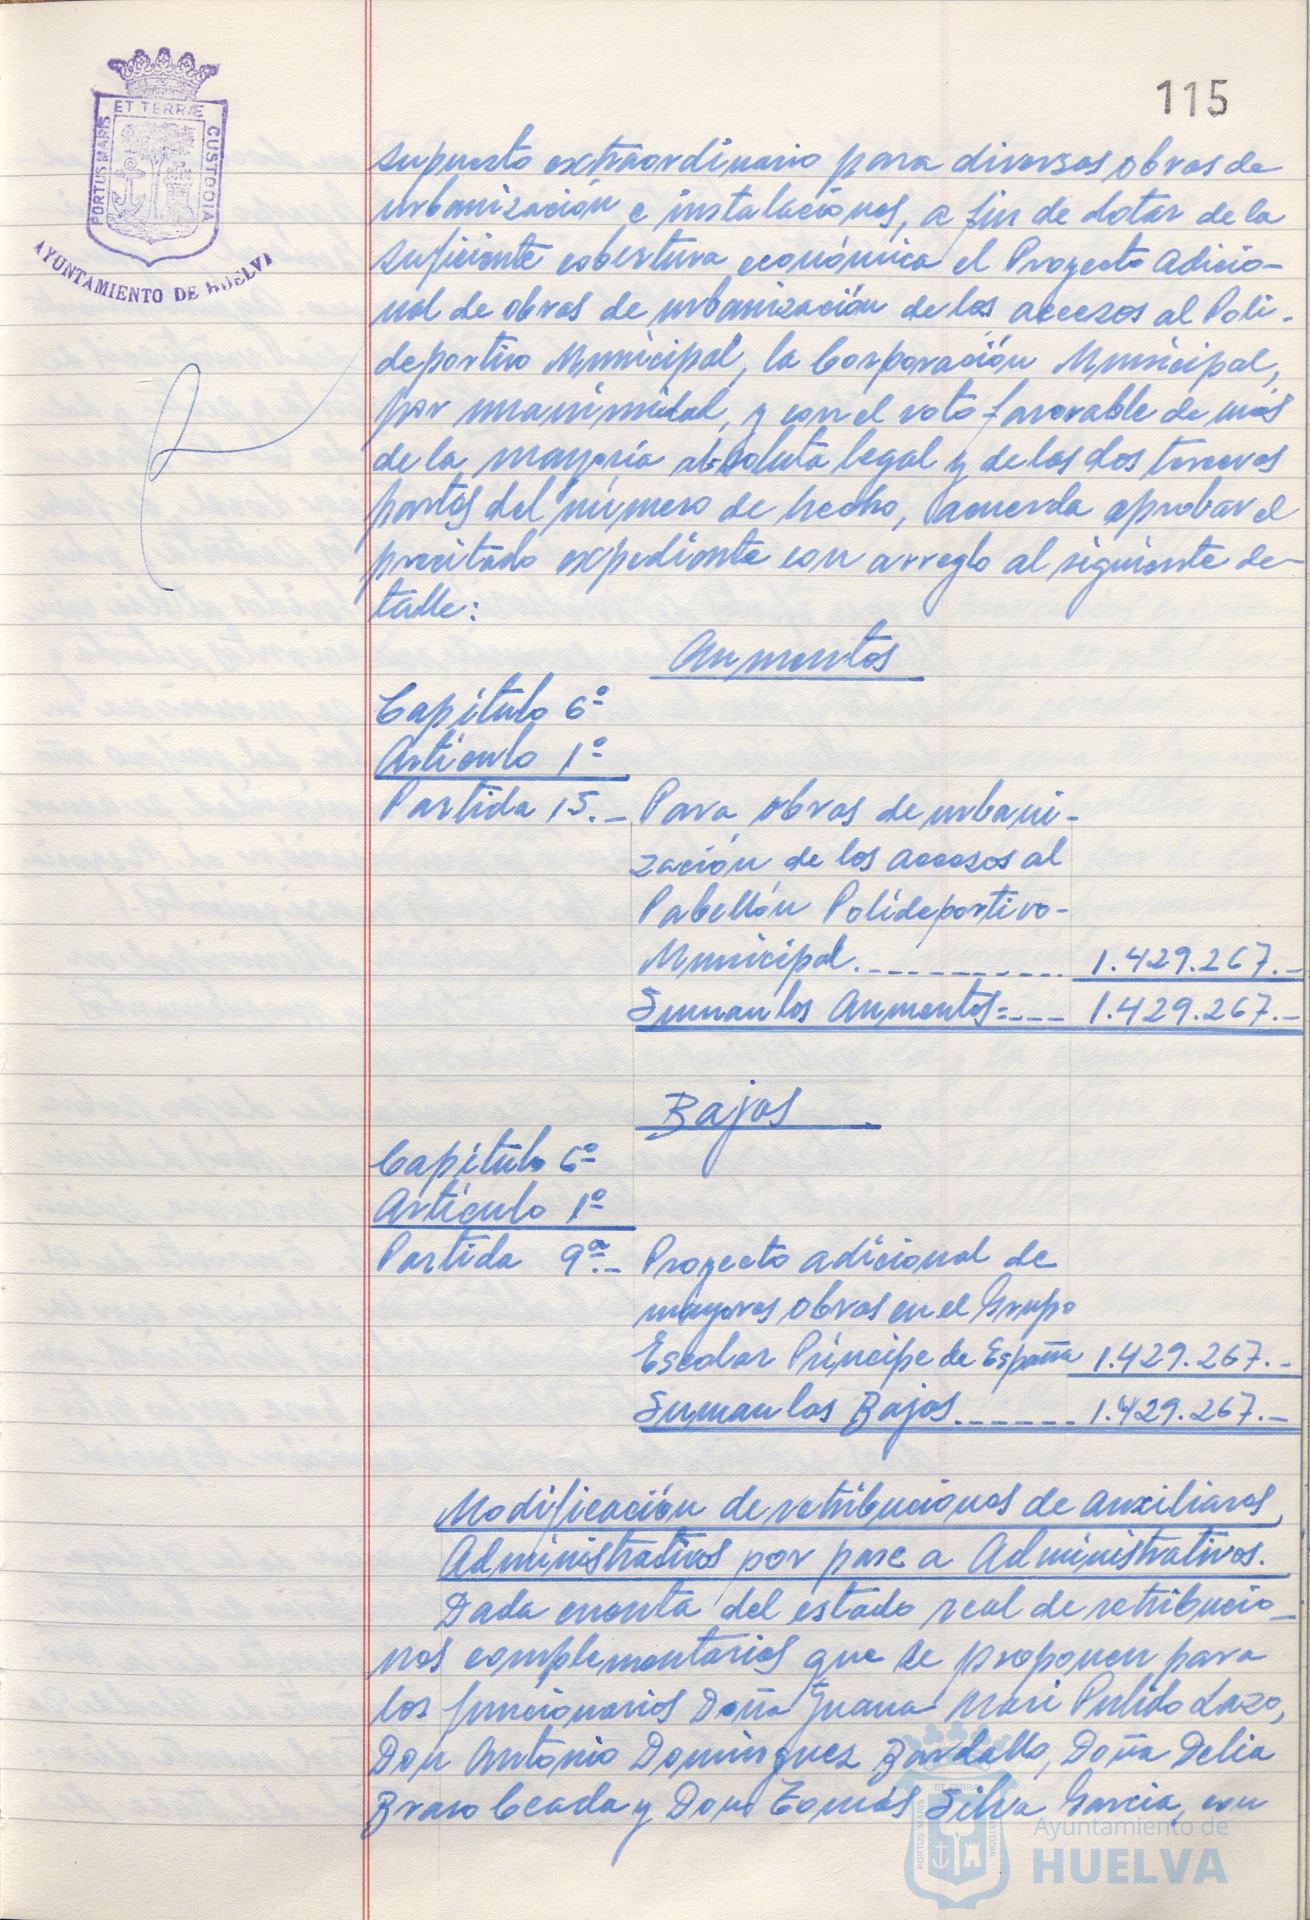 115
ET TERRÆ
PORTUS MARIS
CUSTODIA
AYUNTAMIENTO DE HUELVA
supuesto extraordinario para diversas obras de
urbanización e instalaciones, a fin de dotar de la
suficiente cobertura económica el Proyecto adicio-
nal de obras de urbanización de los accesos al Poli-
deportivo Municipal, la Corporación Municipal,
por unanimidad, y con el voto favorable de más
de la mayoría absoluta legal y de las dos terceras
partes del número de hecho, acuerda aprobar el
precitado expediente con arreglo al siguiente de-
talle:
Aumentos
Capítulo 6º
Artículo 1º
Partida 15.- Para obras de urbani-
zación de los accesos al
Pabellón Polideportivo-
Municipal.----------- 1.429.267.-
Suman los Aumentos=---- 1.429.267.-
Bajas
Capítulo 6º
Artículo 1º
Partida 9ª.- Proyecto adicional de
mayores obras en el Grupo
Escolar Príncipe de España 1.429.267.-
Suman las Bajas.------ 1.429.267.-
Modificación de retribuciones de Auxiliares
Administrativos por pase a Administrativos.
Dada cuenta del estado real de retribucio-
nes complementarias que se proponen para
los funcionarios Doña Juana Mari Pulido Lazo,
Don Antonio Domínguez Bardallo, Doña Delia
Bravo Ceada y Don Tomás Silva García, con
ET TERRÆ
PORTUS MARIS
CUSTODIA
Ayuntamiento de
HUELVA